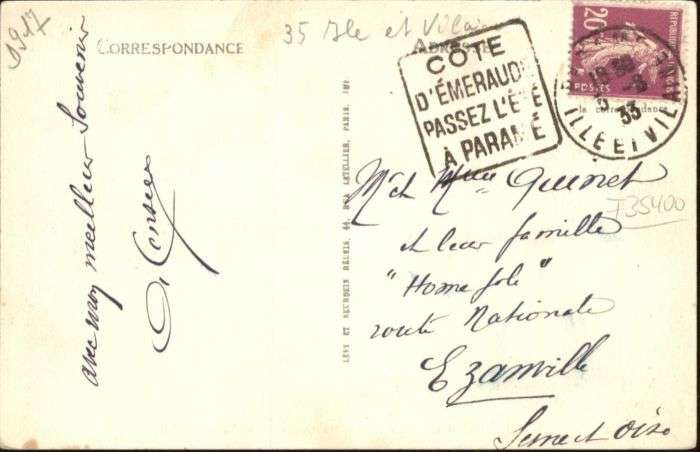 D917
35 Ile et Vilaine
CORRESPONDANCE
ADRESSE
CÔTE
D'ÉMERAUDE
PASSEZ L'ÉTÉ
À PARAMÉ
20
POSTES
33
ILLE ET VIL
la correspondance
avec mon meilleur souvenir
LÉVY ET NEURDEIN RÉUNIS, 44, RUE LETELLIER, PARIS, IMP
M et Mme Quinet
et leur famille
"Home Joli"
route Nationale
Ezanville
Seine et Oise
T35400